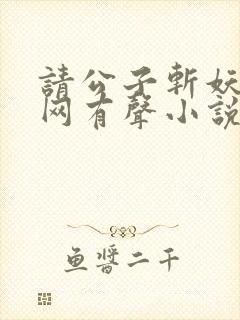 請公子斬妖
网有聲小說
鱼醬二千